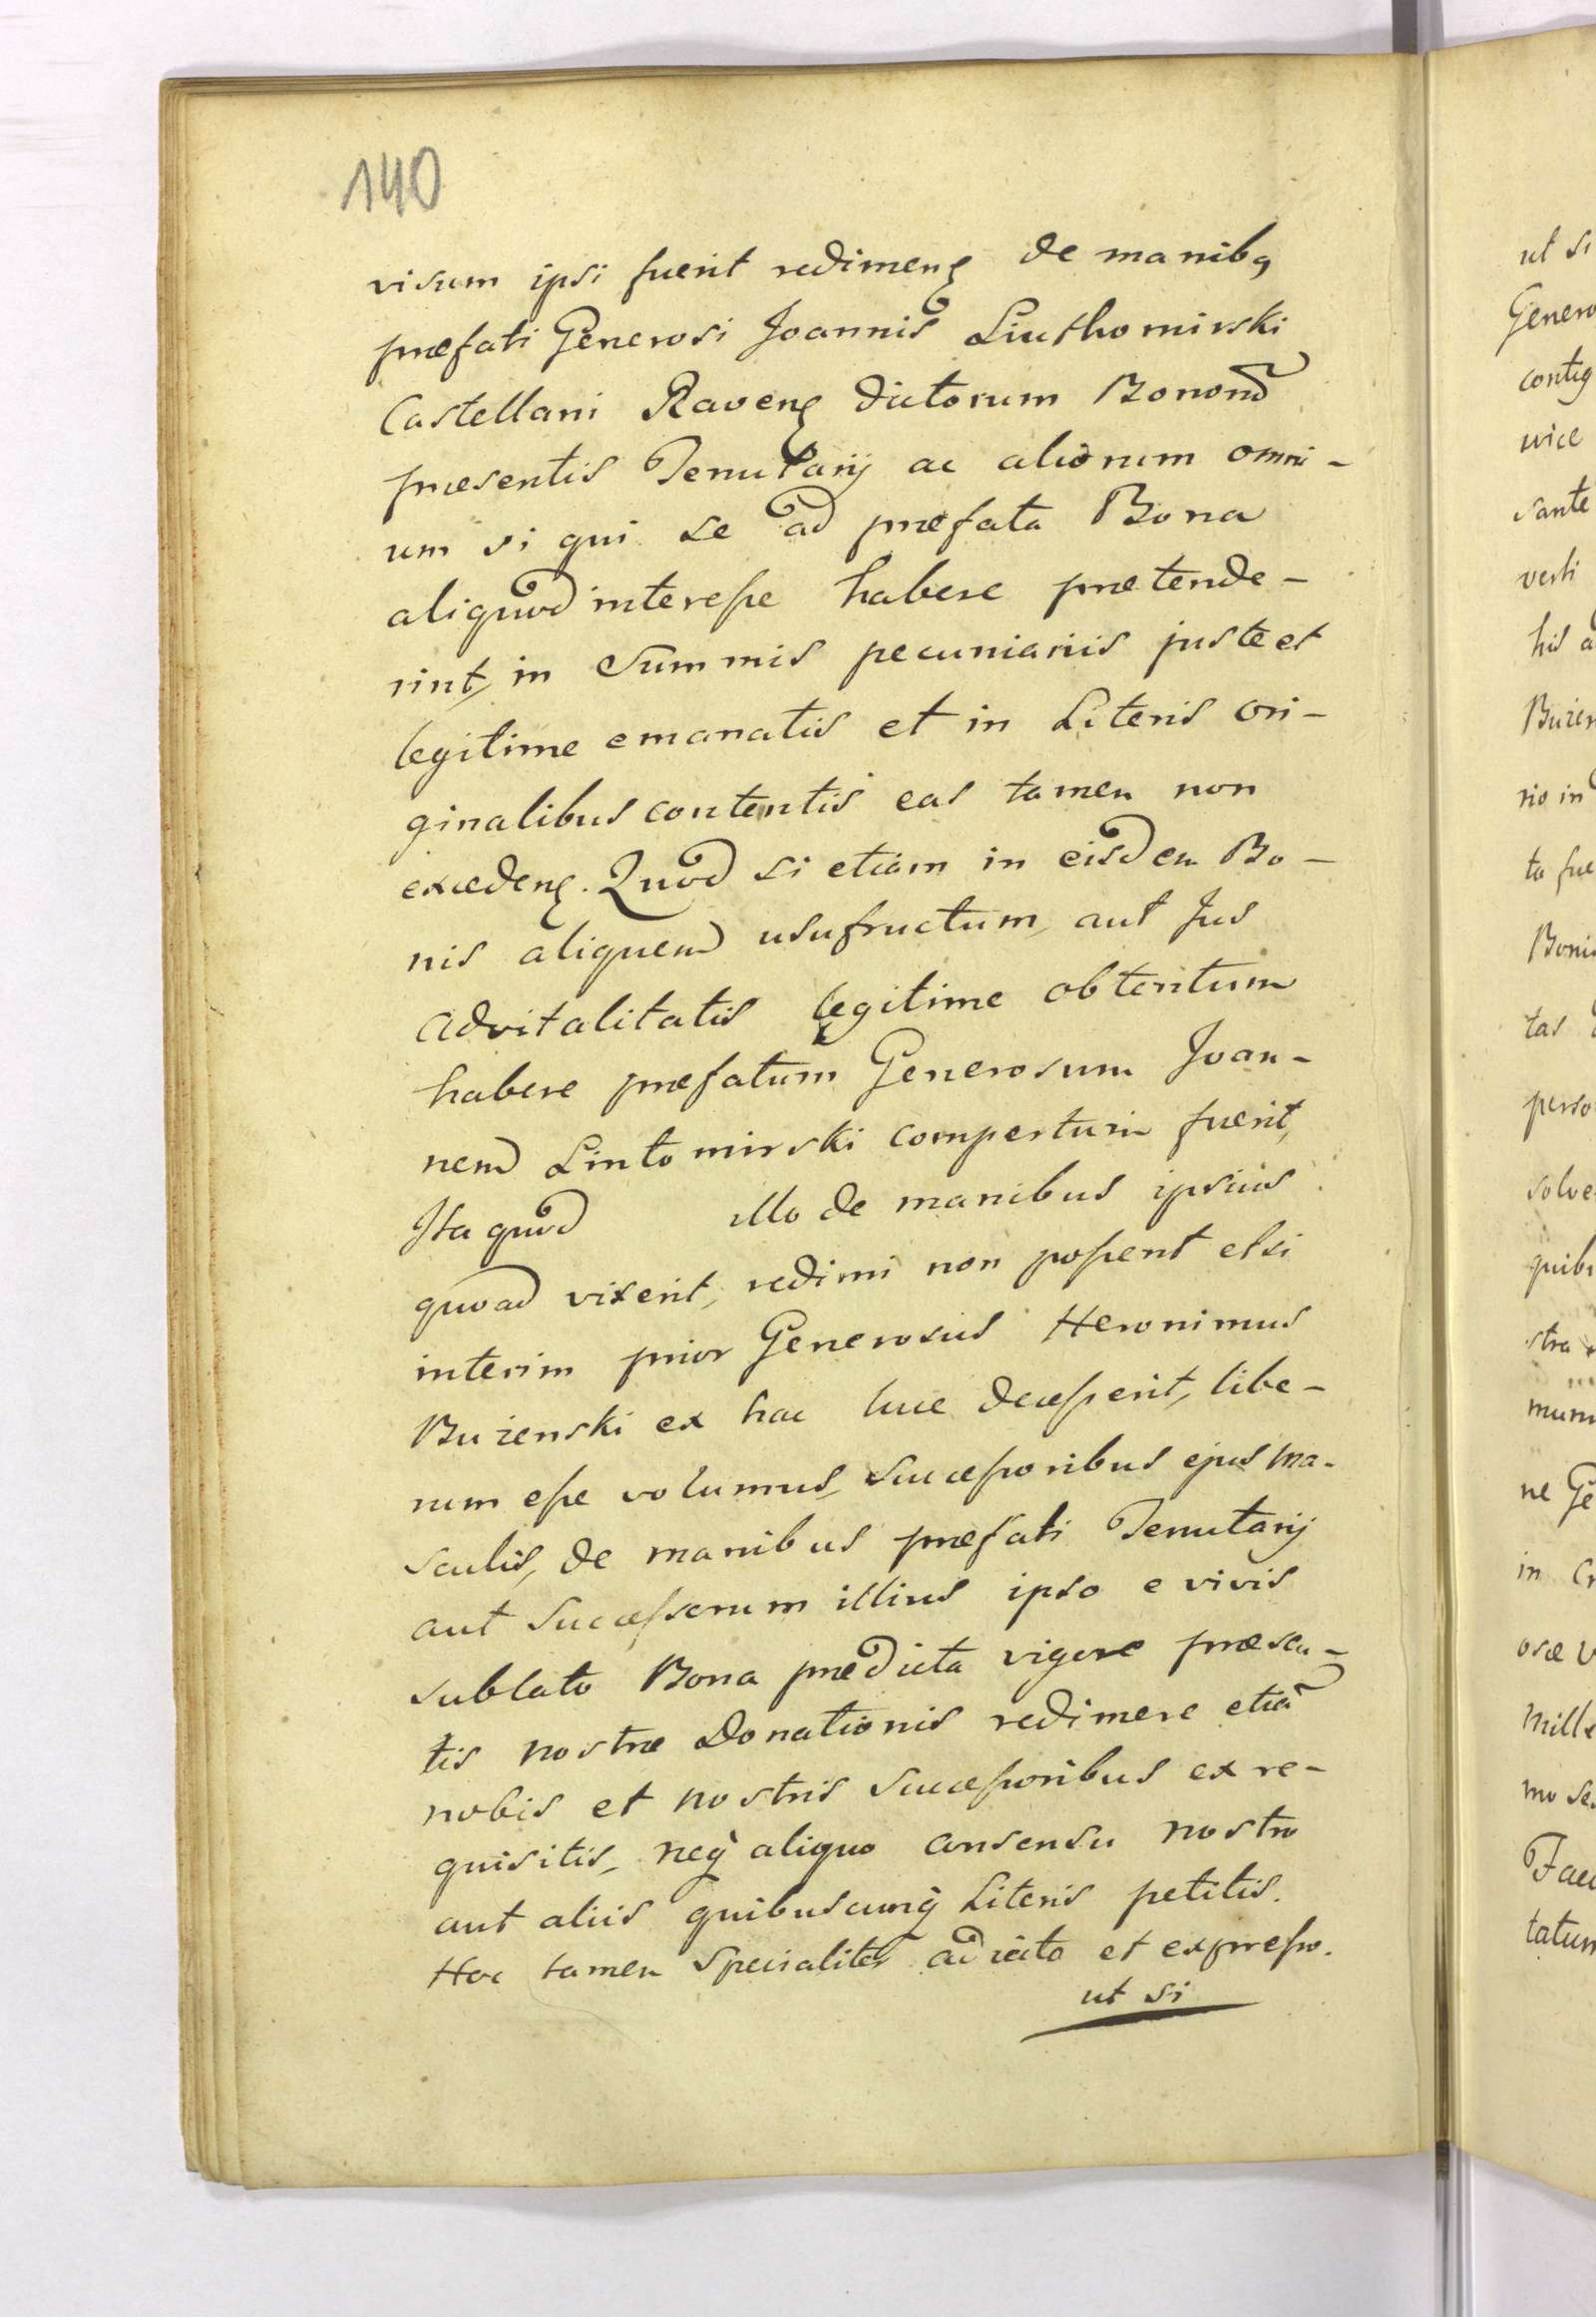 140
visum ipsi fuerit redimenꝭ de manibꝫ
præfati Generosi Joannis Liuthomirski
Castellani Ravenꝭ dictorum Bonorũ
præsentis Tenutarij ac aliorum omni-
um si qui se ad præfata Bona
aliquod interesse habere prætende-
rint, in Summis pecuniariis juste et
legitime emanatis et in Literis ori-
ginalibus contentis eas tamen non
excedenꝭ. Quod si etiam in eisdem Bo-
nis aliquem usufructum, aut Jus
advitalitatis legitime obtentum
habere præfatum Generosum Joan-
nem Lintomirski compertum fuerit,
Ita quod illo de manibus ipsius
quoad vixerit, redimi non possent etsi
interim prior Generosus Heronimus
Buzenski ex hac luce decesserit, libe-
rum esse volumus, Successoribus ejus ma-
sculis, de manibus præfati Tenutarij
aut Successorum illius ipso e vivis
sublato Bona prædicta vigore præsen-
tis nostræ Donationis redimere etiã
nobis et nostris Successoribus ex re-
quisitis, neq̀ aliquo consensu nostro
aut aliis quibuscunq̀ Literis petitis.
Hoc tamen Specialiter adiecto et expresso.
ut si
ut si
Genero
contig
vice
sante
verti
his a
Buzen
rio in
ta fue
Boni
tas
perso
solve
quibu
stra
mum
ne Ge
in
osæ
mille
mo Se
Fac
tatum